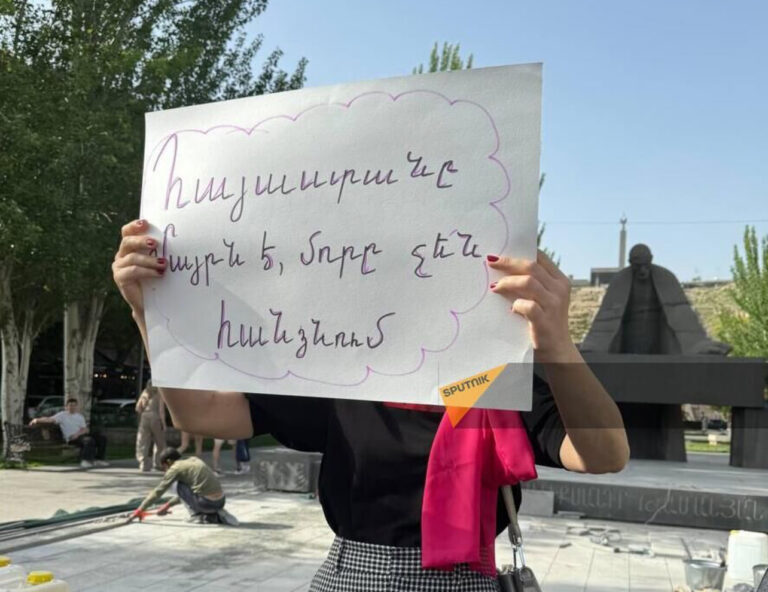 Հայաստանը
Մայրն է, մորը չեն
հանձնում
SPUTNIK
ԹԱՄԱՆՅԱՆ